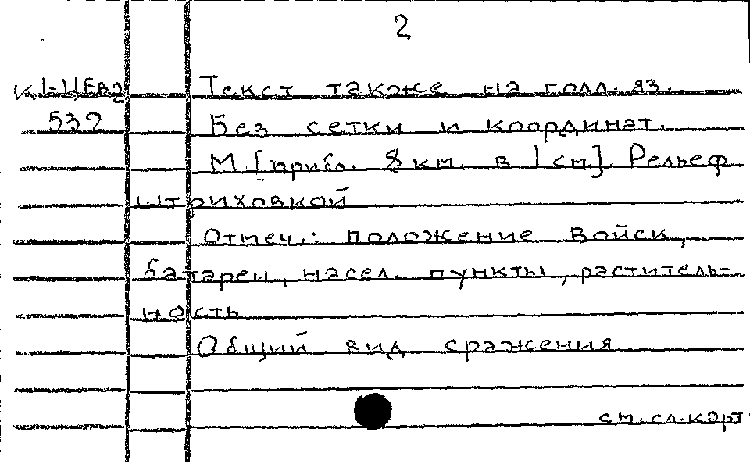 2
К1-ЦЕв2 Текст также на голл. яз.
532 Без сетки и координат.
М. [прибл. 8 км. в 1 см]. Рельеф
штриховкой
Отмеч.: положение войск,
батареи, насел. пункты, раститель-
ность
Общий вид сражения
см. сл. карт